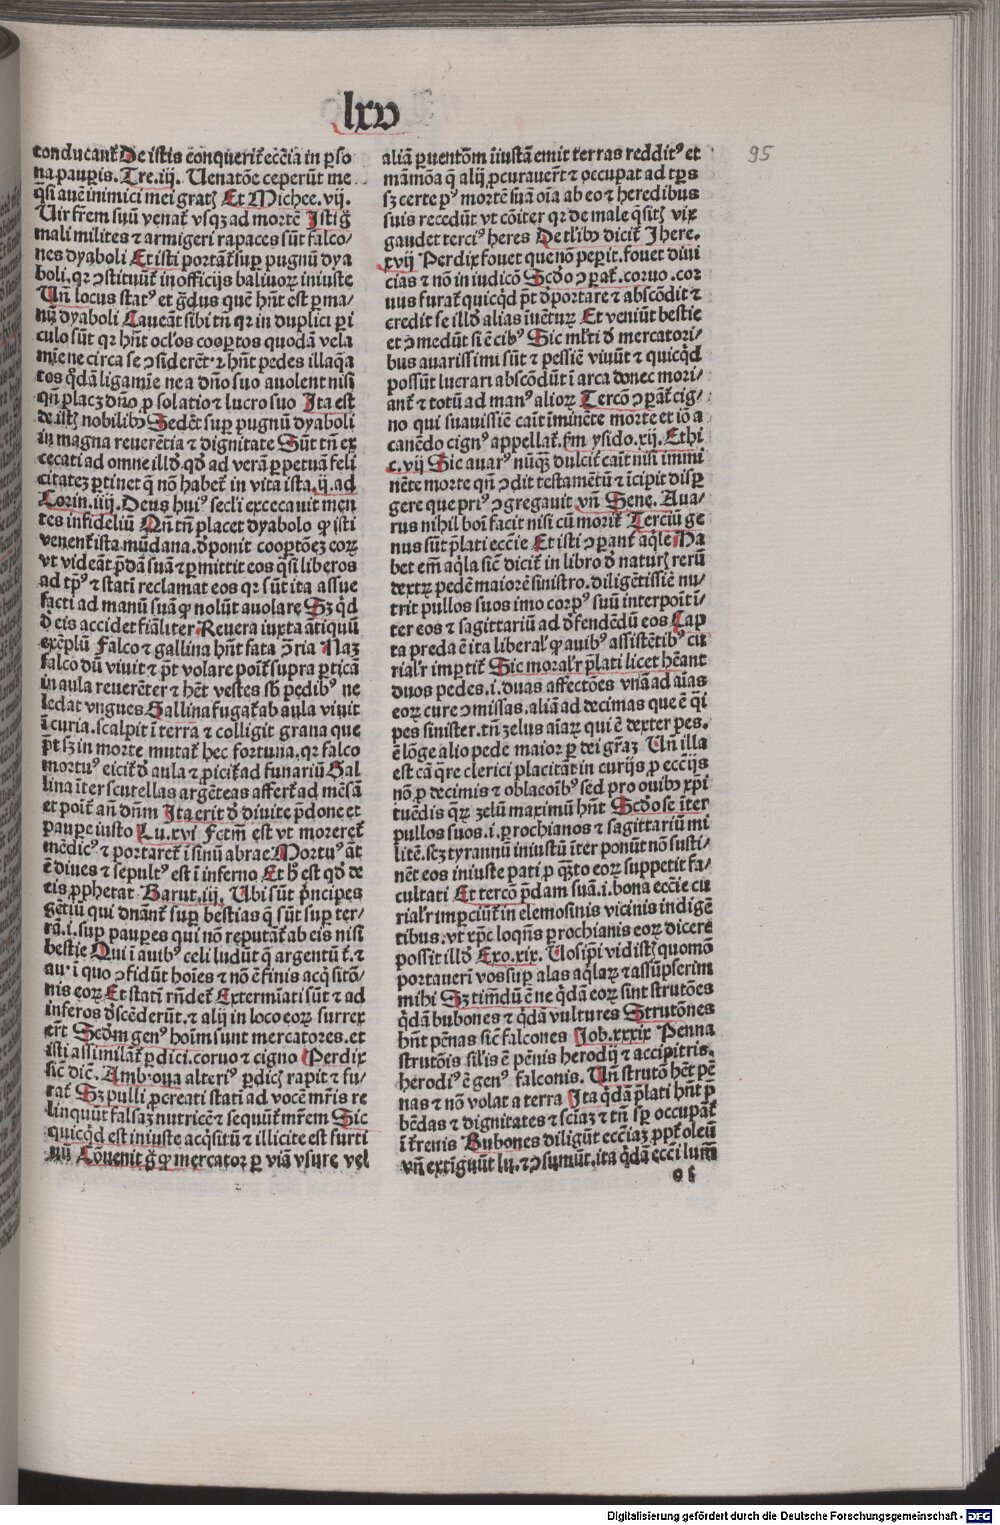 lxv
95
conducant̄ De istis conquerit̄ ecc̄ia in ꝑso
na pauꝑis. Tre.iij. Uenatōe ceperūt me
q̄si auē inimici mei gratꝭ Et Michee.vij.
Uir frēm suū venat̄ vsqꝫ ad mortē Isti ḡ
mali milites ⁊ armigeri rapaces sūt falco/
nes dyaboli Et isti portāt̄ suꝑ pugnū dya
boli.qr ↄstituūt̄ in officijs baliuoꝝ iniuste
Un̄ locus stat⁹ et g̈dus quē hn̄t est ꝑ ma/
nū dyaboli Caueāt sibi tn̄ qr in duplici ꝑi
culo sūt qr hn̄t ocl'os cooꝑtos quodā vela
mīe ne circa se ↄsiderēt.⁊ hn̄t pedes illaq̄a
tos q̇dā ligamīe ne a dn̄o suo auolent nisi
qn̄ placꝫ dn̄o ꝓ solatio ⁊ lucro suo Ita est
de istꝭ nobilibꝰ Sedēt suꝑ pugnū dyaboli
in magna reuerētia ⁊ dignitate Sūt tn̄ ex
cecati ad omne illd̄ qd̄ ad verā ꝑpetuā feli
citatēꝫ ꝑtinet q̄ nō habet̄ in vita ista.ij.ad
Corin.iiij. Deus hui⁹ secl'i excecauit men
tes infideliū Qn̄ tn̄ placet dyabolo ꝙ isti
venent̄ ista mūdana.d̄ponit cooꝑtōeꝫ eoꝝ
vt videāt p̄dā suā ⁊ ꝑmittit eos q̄si liberos
ad tp̄⁹ ⁊ statī reclamat eos qr sūt ita assue
facti ad manū suā ꝙ nolūt auolare Sꝫ qd̄
d̄ eis accidet fiāliter Reuera iuxta ātiquū
exēplū Falco ⁊ gallina hn̄t fata ↄ̄ria Naꝫ
falco dū viuit ⁊ p̄t volare poīt̄ supra ꝑticā
in aula reuerēter ⁊ hēt vestes sb̄ pedib⁹ ne
ledat vngues Gallina fugat̄ ab aula viuit
ī curia.scalpit ī terra ⁊ colligit grana que
p̄t sꝫ in morte mutat̄ hec fortuna.qr falco
mortu⁹ eicit̄ d̄ aula ⁊ ꝓicit̄ ad funariū Gal
lina īter scutellas argēteas affert̄ ad mēsā
et poīt̄ an̄ dn̄m Ita erit d̄ diuite p̄done et
pauꝑe iusto Lu.xvi Fctm̄ est vt moreret̄
mēdic⁹ ⁊ portaret̄ ī sinū abrae Mortu⁹ āt
ē diues ⁊ sepult⁹ est ī inferno Et h̄ est qd̄ de
eis ꝓphetat Barut.iij. Ubi sūt p̄ncipes
gētiū qui dn̄ant̄ suꝑ bestias q̄ sūt suꝑ ter/
rā.i.suꝑ pauꝑes qui nō reputāt̄ ab eis nisi
bestie Qui ī auib⁹ celi ludūt q̄ argentū t̄.⁊
au.ī quo ↄfidūt hoīes ⁊ nō ē finis acq̄sitō/
nis eoꝝ Et statī rn̄det̄ Extermīati sūt ⁊ ad
inferos d̄scēderūt.⁊ alij in loco eoꝝ surrex
er̄t Scd̄m gen⁹ hoīm sunt mercatores.et
isti assimilāt̄ ꝑdici.coruo ⁊ cigno Perdix
sic̄ dic̄. Amb.oua alteri⁹ ꝑdicꝭ rapit ⁊ fu/
rat̄ Sꝫ pulli ꝓcreati stati ad vocē mr̄is re
linquūt falsaꝫ nutricē ⁊ sequūt̄ mr̄em Sic
quicq̇d est iniuste acq̄sitū ⁊ illicite est furti
uū Cōuenit g̊ ꝙ mercatoꝝ ꝑ viā vsure vel
aliā ꝑuentōm iīustā emit terras reddit⁹ et
māmōa q̄ alij ꝓcurauer̄t ⁊ occupat ad tꝑs
sꝫ certe p⁹ mortē suā oīa ab eo ⁊ heredibus
suis recedūt vt cōiter qr de male q̄sitꝭ vix
gaudet terci⁹ heres De tl'ibꝰ dicit̄ Ihere.
xvij Perdix fouet que nō peꝑit.fouet diui
cias ⁊ nō in iudicō Scd̄o ↄꝑat̄.coruo.cor
uus furat̄ quicq̇d p̄t d̄portare ⁊ abscōdit ⁊
credit se illd̄ alias iuētuꝝ Et veniūt bestie
et ↄmedūt si ē cib⁹ Sic ml'ti d̄ mercatori/
bus auarissimi sūt ⁊ pessiē viuūt ⁊ quicq̇d
possūt lucrari abscōdūt ī arca donec mori/
ant̄ ⁊ totū ad man⁹ alioꝝ Tercō ↄꝑat̄ cig/
no qui suauissiē caīt īminēte morte et iō a
canēdo cign⁹ appellat̄.ſm ysido.xij. Ethi
c.vij Sic auar⁹ nūqꝫ dulcit̄ caīt nisi immi
nēte morte qn̄ ↄdit testamētū ⁊ īcipit disꝑ
gere que pri⁹ ↄgregauit vn̄ Sene. Aua/
rus nihil boī facit nisi cū morit̄ Terciū ge
nus sūt p̄lati ecc̄ie Et isti ↄꝑant̄ aq̇le Ha
bet em̄ aq̇la sic̄ dicit̄ in libro d̄ naturꝭ rerū
dextꝝ pedē maiorē sinistro.diligētissiē nu/
trit pullos suos imo corp⁹ suū interpoīt ī/
ter eos ⁊ sagittariū ad d̄fendēdū eos Cap
ta preda ē ita liberal' ꝙ auib⁹ assistētib⁹ cu
rial'r imꝑtit̄ Sic moral'r p̄lati licet hēant
duos pedes.i.duas affectōes vnā ad aīas
eoꝝ cure ↄmissas.aliā ad decimas que ē q̄i
pes sinister.tn̄ zelus aīaꝝ qui ē dexter pes.
ē lōge alio pede maior ꝑ dei gr̄aꝫ Un̄ illa
est cā q̄re clerici placitāt in curijs ꝓ ecc̄ijs
nō ꝓ decimis ⁊ oblacoīb⁹ sed pro ouibꝰ xp̄i
tuēdis qꝝ zelū maximū hn̄t Scd̄o se īter
pullos suos.i.ꝑrochianos ⁊ sagittariū mi
litē.scꝫ tyrannū iniustū īter ponūt nō susti/
nēt eos iniuste pati ꝓ q̄ꝫto eoꝝ suppetit fa/
cultati Et tercō p̄dam suā.i.bona ecc̄ie cu
rial'r imꝑciūt̄ in elemosinis vicinis indigē
tibus.vt xp̄c loqn̄s ꝑrochianis eoꝝ dicere
possit illd̄ Exo.xix. Uosip̄i vidistꝭ quomō
portauerī vos suꝑ alas aq̇laꝝ ⁊ assūpserim
mihi Sꝫ timd̄ū ē ne q̇dā eoꝝ sint strutōes
q̇dā bubones ⁊ q̇dā vultures Strutōnes
hn̄t pēnas sic̄ falcones Job.xxxix Penna
strutōis silis ē pēnis herodij ⁊ accipitris.
herodi⁹ ē gen⁹ falconis. Un̄ strutō hēt pē
nas ⁊ nō volat a terra Ita q̇dā p̄lati hn̄t p̄
bēdas ⁊ dignitates ⁊ sciaꝫ ⁊ tn̄ sꝑ occupāt̄
ī t̄renis Bubones diligūt ecc̄iaꝫ ꝓpt̄ oleū
vn̄ extīguūt lu.⁊ ↄsumūt.ita q̇dā ecci lum̄
Digitalisierung gefördert durch die Deutsche Forschungsgemeinschaft - DFG